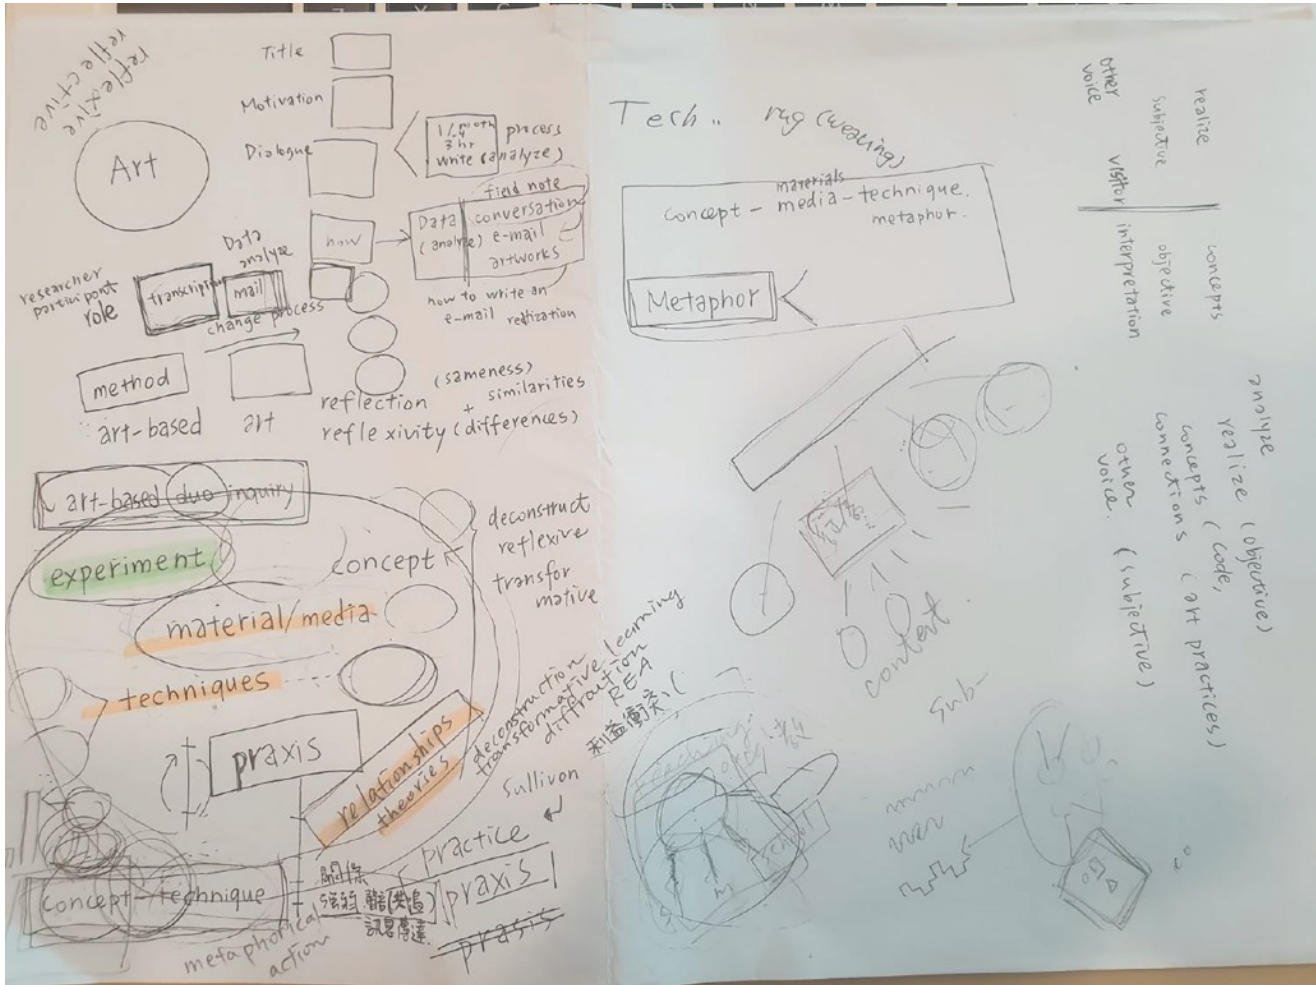 reflective
reflexive
Art
Title
Motivation
Dialogue
3 hr
process
write (analyze)
how
Data
(analyze)
field note
conversation
e-mail
artworks
how to write an
e-mail
realization
researcher
participant
role
transcription
Data
analyze
mail
change process
method
art-based
art
reflection
reflexivity (differences)
+
(sameness)
similarities
art-based duo inquiry
experiment
concept
material/media
techniques
praxis
relationships
theories
deconstruct
reflexive
transfor
mative
deconstruction
transformative learning
diffraction
REA
利益衝突
Sullivon
practice
praxis
prasis
concept-technique
關係
metaphorical
action
Tech..
rug (weaving)
materials
concept - media - technique.
metaphor.
Metaphor
context
sub-
school
realize
subjective
other
voice
visitor
concepts
objective
interpretation
analyze
realize (objective)
concepts (code,
connections (art practices)
other
voice. (subjective)